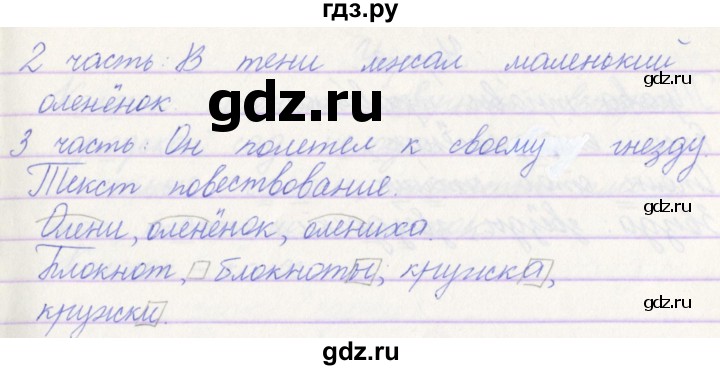 гдз.ру
2 часть: В тени лежал маленький
оленёнок.
gdz.ru
3 часть: Он полетел к своему гнезду.
Текст повествование.
Олени, оленёнок, олениха.
Блокнот, блокноты, кружка,
кружки.
gdz.ru